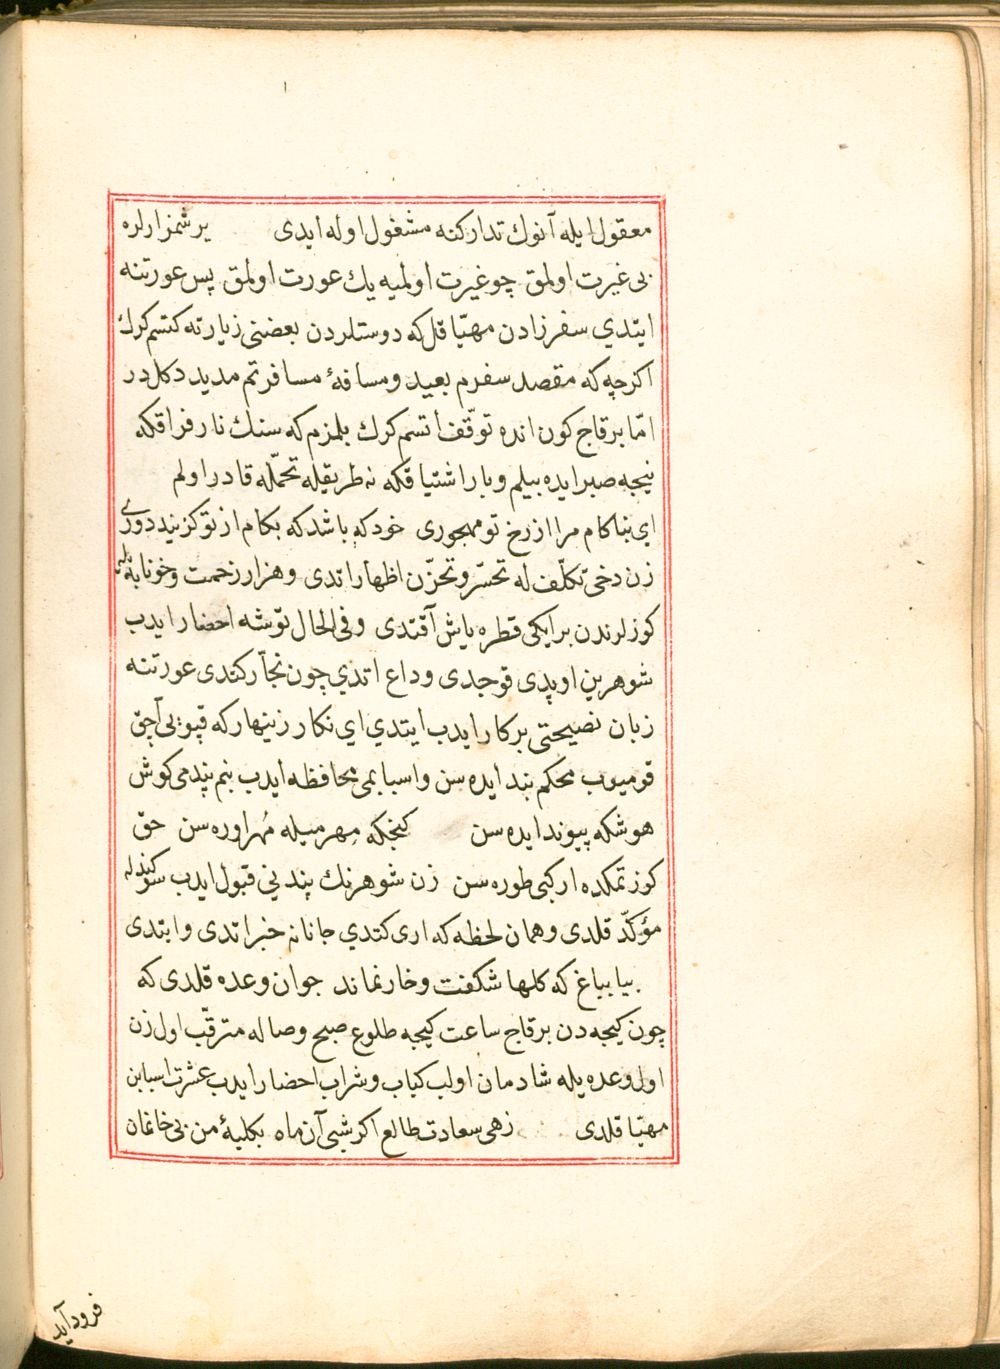 معقول ايله آنوك تداركنه مشغول اوله ايدى يرشمزارلره
بى غيرت اولمق چو غيرت اولميه يك عورت اولمق پس عورتنه
ايتدي سفر زادن مهيّا قل كه دوستلردن بعضنى زيارته كتسم كرك
اكرچه كه مقصد سفرم بعيد ومسافهٔ مسافرتم مديد دكل در
امّا برقاج كون انده توقّف اتسم كرك بلمزم كه سنك نار فراقكه
نيجه صبر ايده بيلم وبار اشتياقكه نه طريقله تحمّله قادر اولم
اي بناكام مرا از رخ تو مهجورى خود كه باشد كه بكام از تو كزيند دورى
زن دخى تكلّف له تحسّر وتحزّن اظهار اتدى وهزار زحمت وخونابه يله
كوزلرندن بر ايكى قطره ياش آقتدى وفى الحال توشه احضار ايدب
شوهرين اوپدى قوجدى وداع اتدي چون نجّار كتدى عورتنه
زبان نصيحتى بركار ايدب ايتدي اي نكار زينهار كه قپويى آچق
قوميوب محكم بند ايده سن واسبابمى محافظه ايدب بنم پندمى كوش
هوشكه پيوند ايده سن كنجكه مهرميله مُهر اوره سن حق
كوزتمكده ار كبى طوره سن زن شوهرنك پنديني قبول ايدب سوكند له
مؤكّد قلدى وهمان لحظه كه ارى كتدي جانانه خبر اتدى وايتدى
بيا بباغ كه كلها شكفت وخار نماند جوان وعده قلدى كه
چون كيجه دن برقاج ساعت كيجه طلوع صبح وصاله مترقّب اول زن
اول وعده يله شادمان اولب كباب وشراب احضار ايدب عشرت اسبابن
مهيّا قلدى زهى سعادت طالع اكر شبى آن ماه بكلبهٔ من بى خانمان
فرود آيد